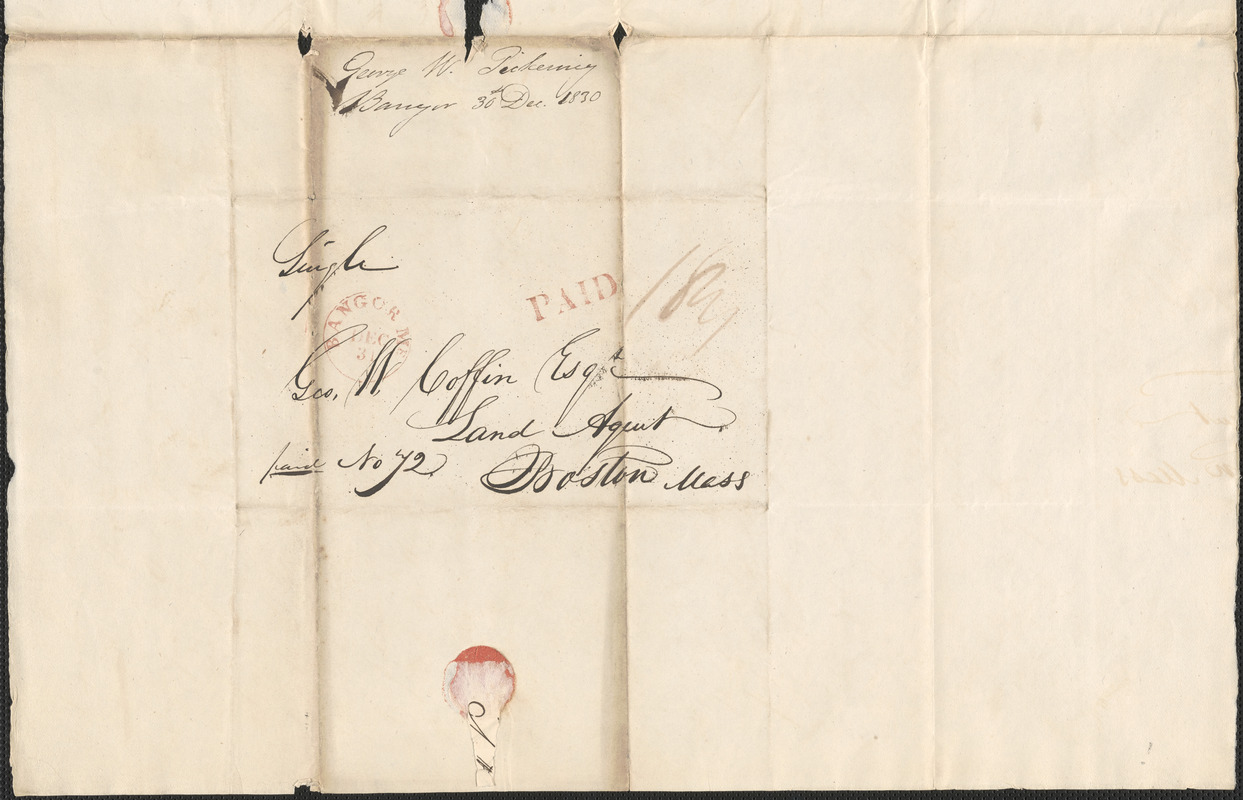 George W. Pickering
Bangor 30th Dec. 1830
Single
PAID
BANGOR ME.
DEC
31
Geo. W. Coffin Esqr
Land Agent
paid No 72
Boston Mass